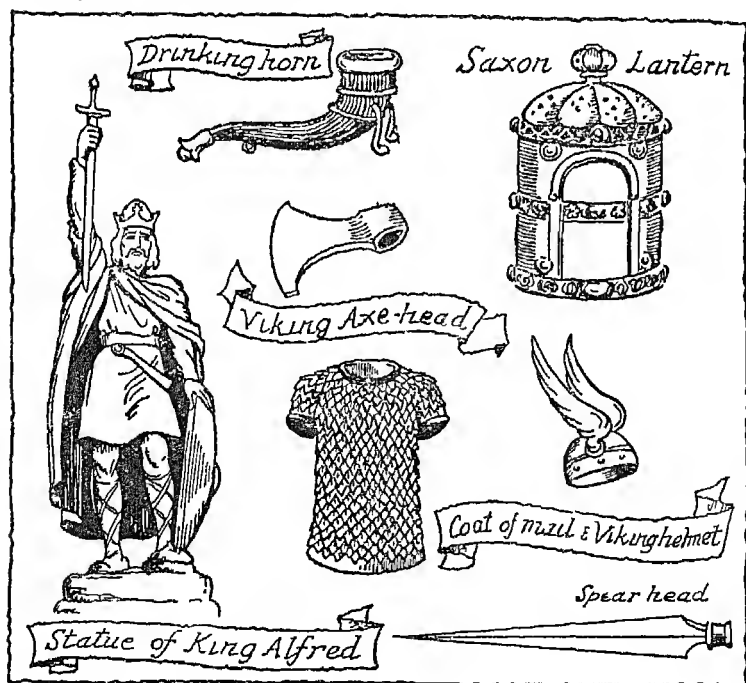 Drinking horn
Saxon Lantern
Viking Axe-head
Coat of mail & Viking helmet
Spear head
Statue of King Alfred